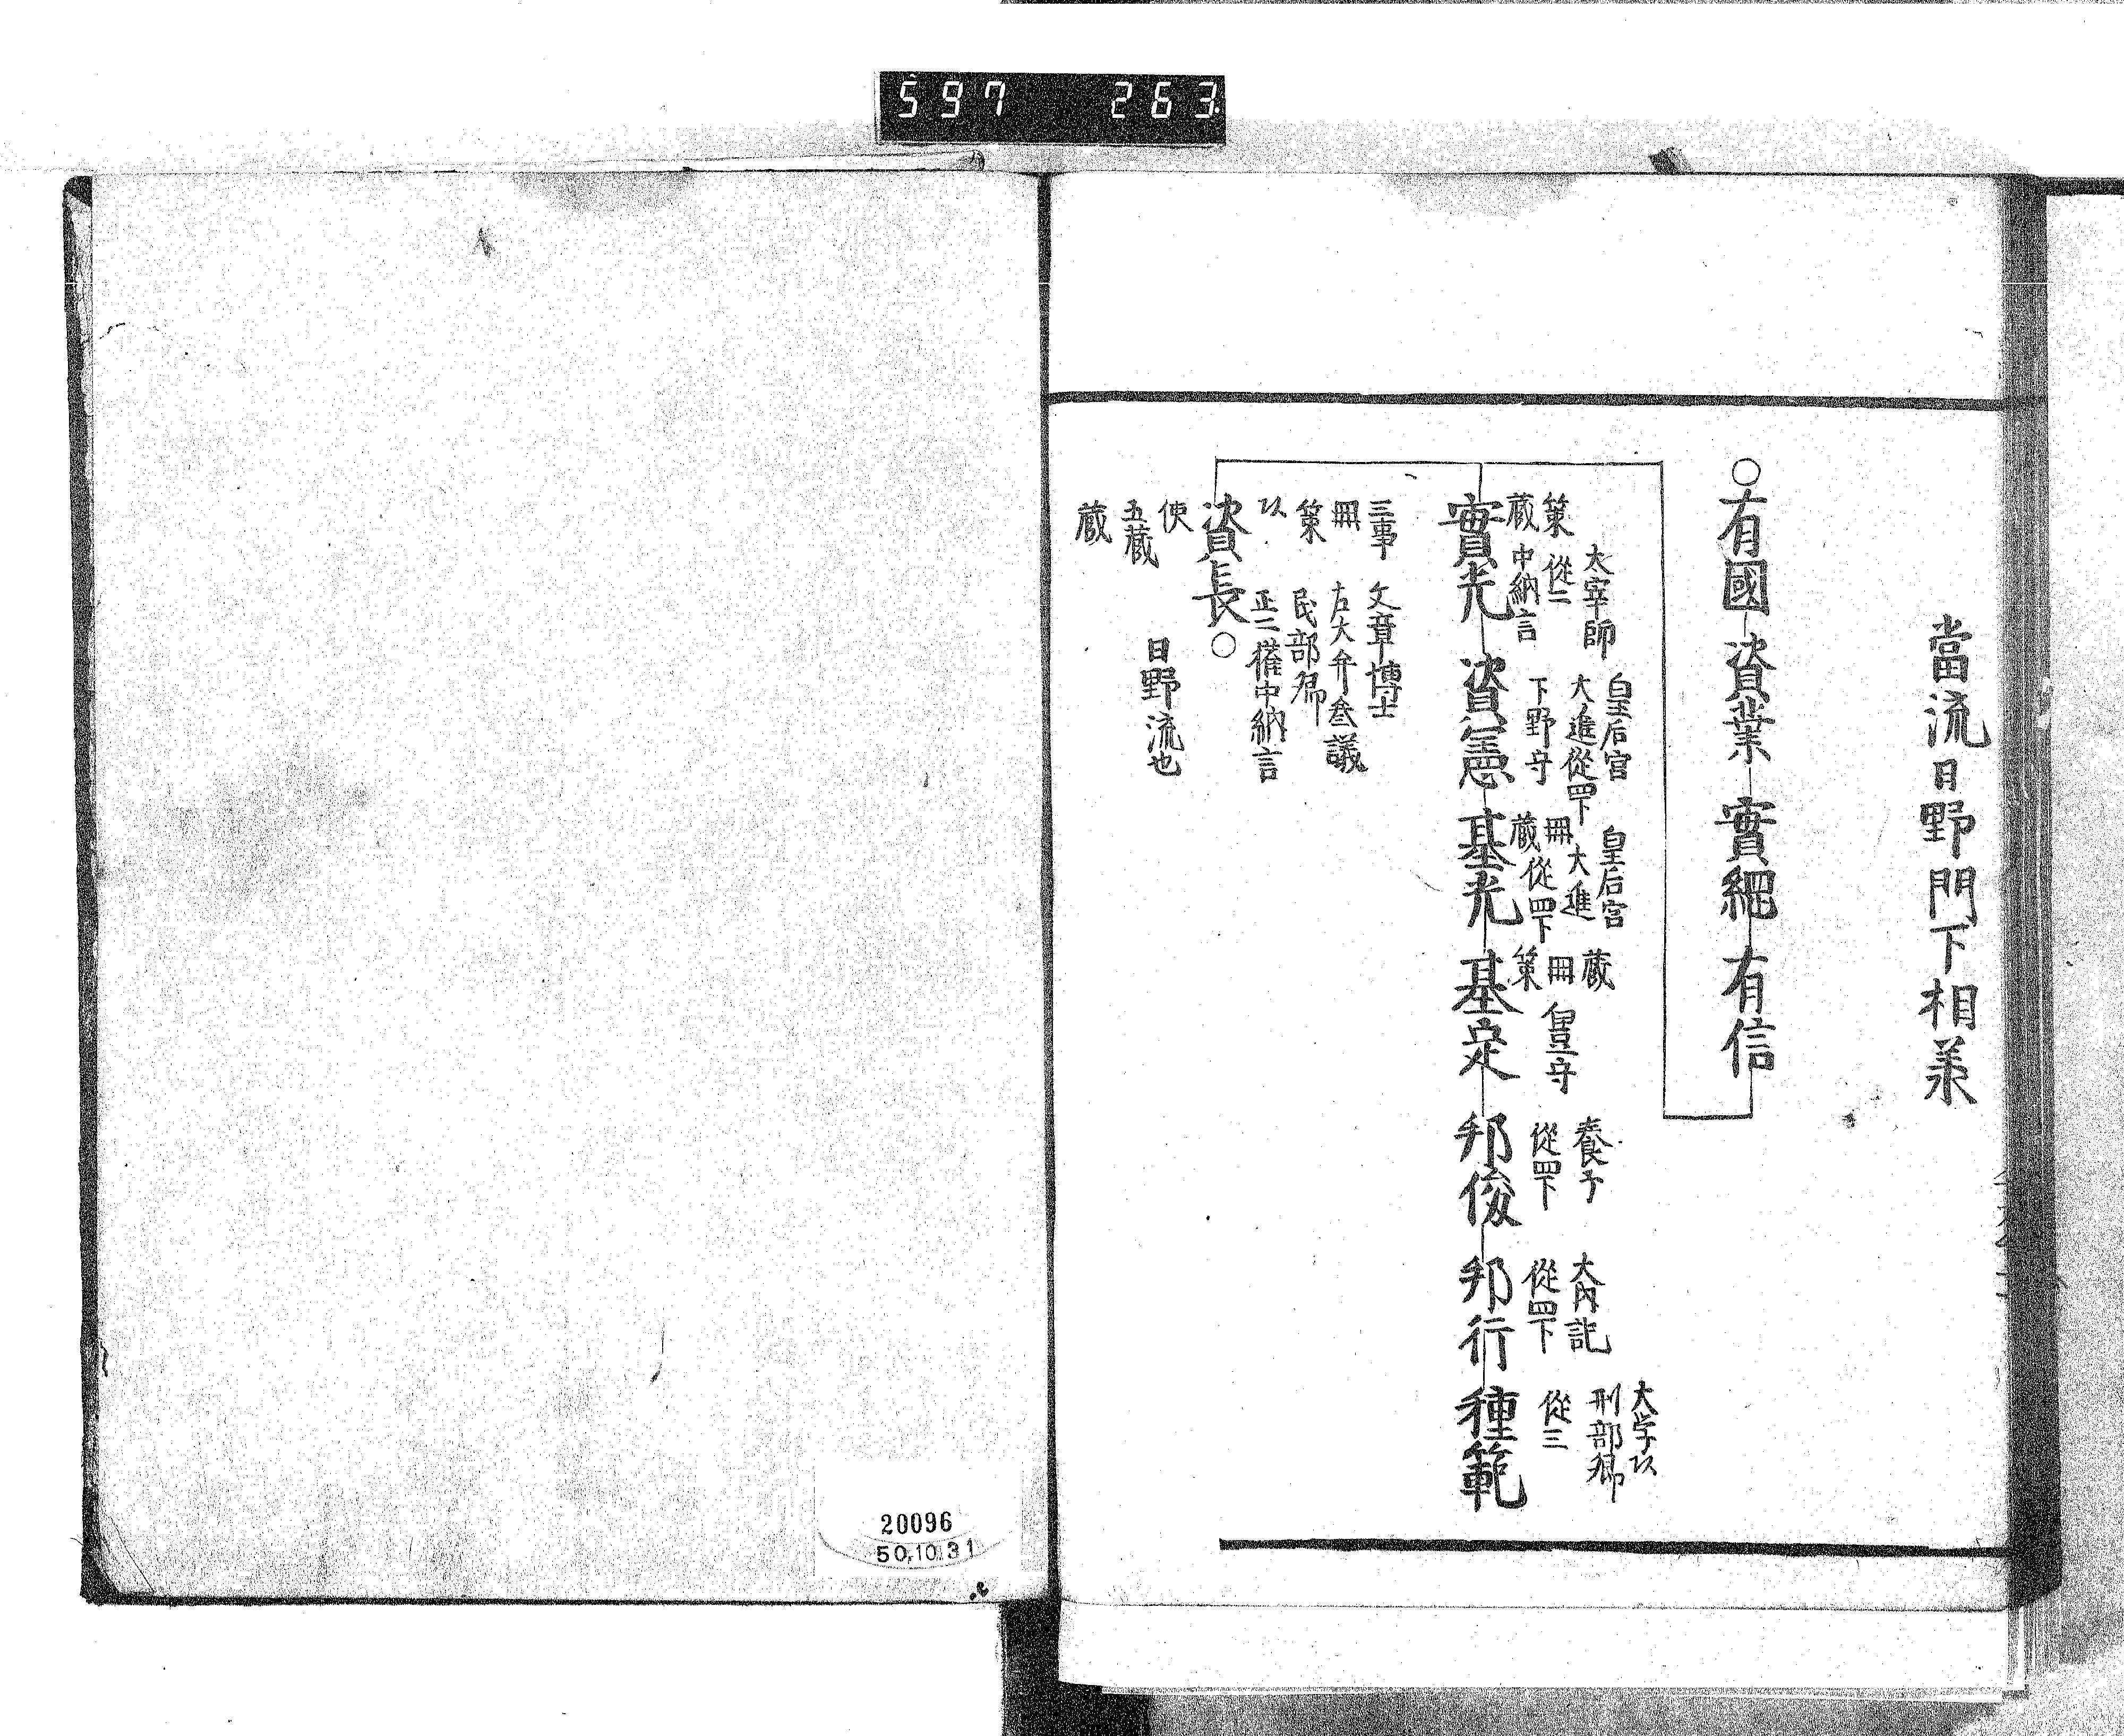 597 263
當流日野門下相羕
○有國 資業 實綱 有信
實光 資憲 基光 基定 邦俊 邦行 種範
太宰帥
策 從二
蔵 中納言
皇后宮
大進從四下
下野守
皇后宮
冊 大進
蔵 從四下
蔵
冊
策
養子
從四下
大内記
從四下
大学以
刑部卿
從三
資長○
三事 文章博士
冊 右大弁叁議
策 民部卿
以 正二権中納言
使
五蔵
蔵
日野流也
20096
50.10.31